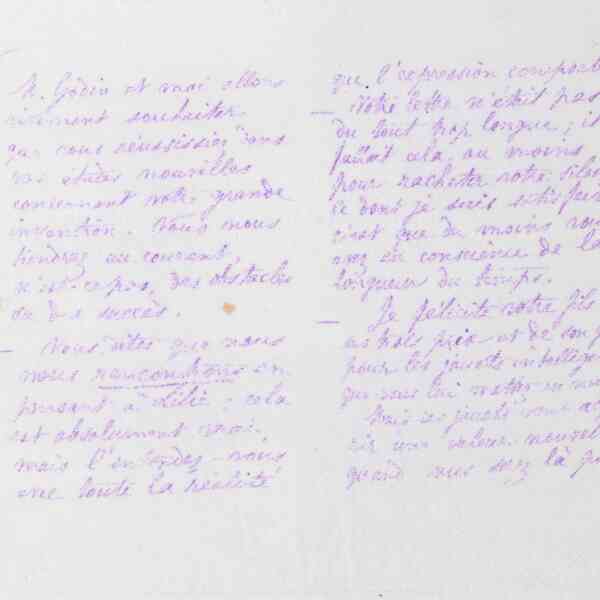 M. Godin et moi allons
vivement souhaiter
que vous réussissiez dans
vos études nouvelles
concernant votre grande
invention. Vous nous
tiendrez au courant,
n'est-ce pas, des obstacles
ou des succès.
Vous dites que nous
nous rencontrons en
pensant à Lili; cela
est absolument vrai,
mais l'entendez-vous
avec toute la réalité
que l'expression comporte
Votre lettre n'était pas
du tout trop longue; il
fallait cela, au moins
pour racheter votre silen
ce dont je suis satisfaite
c'est que du moins vous
ayez eu conscience de la
longueur du temps.
Je félicite votre fils
de
pour les jouets intellec
que vous lui mettez en
Mais ces jouets vont
une valeur nouvel
quand vous serez là